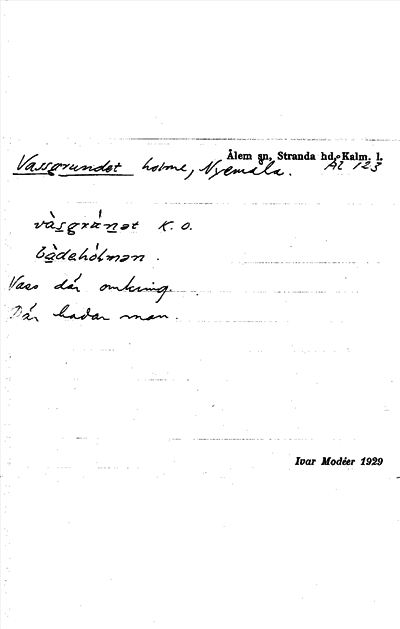 Ålem sn, Stranda hd, Kalm. l.
Vassgrundet holme, Nyemåla. Ål 123
K. O.
bàdehólmən.
Vass där omkring.
Där badar man.
Ivar Modéer 1929